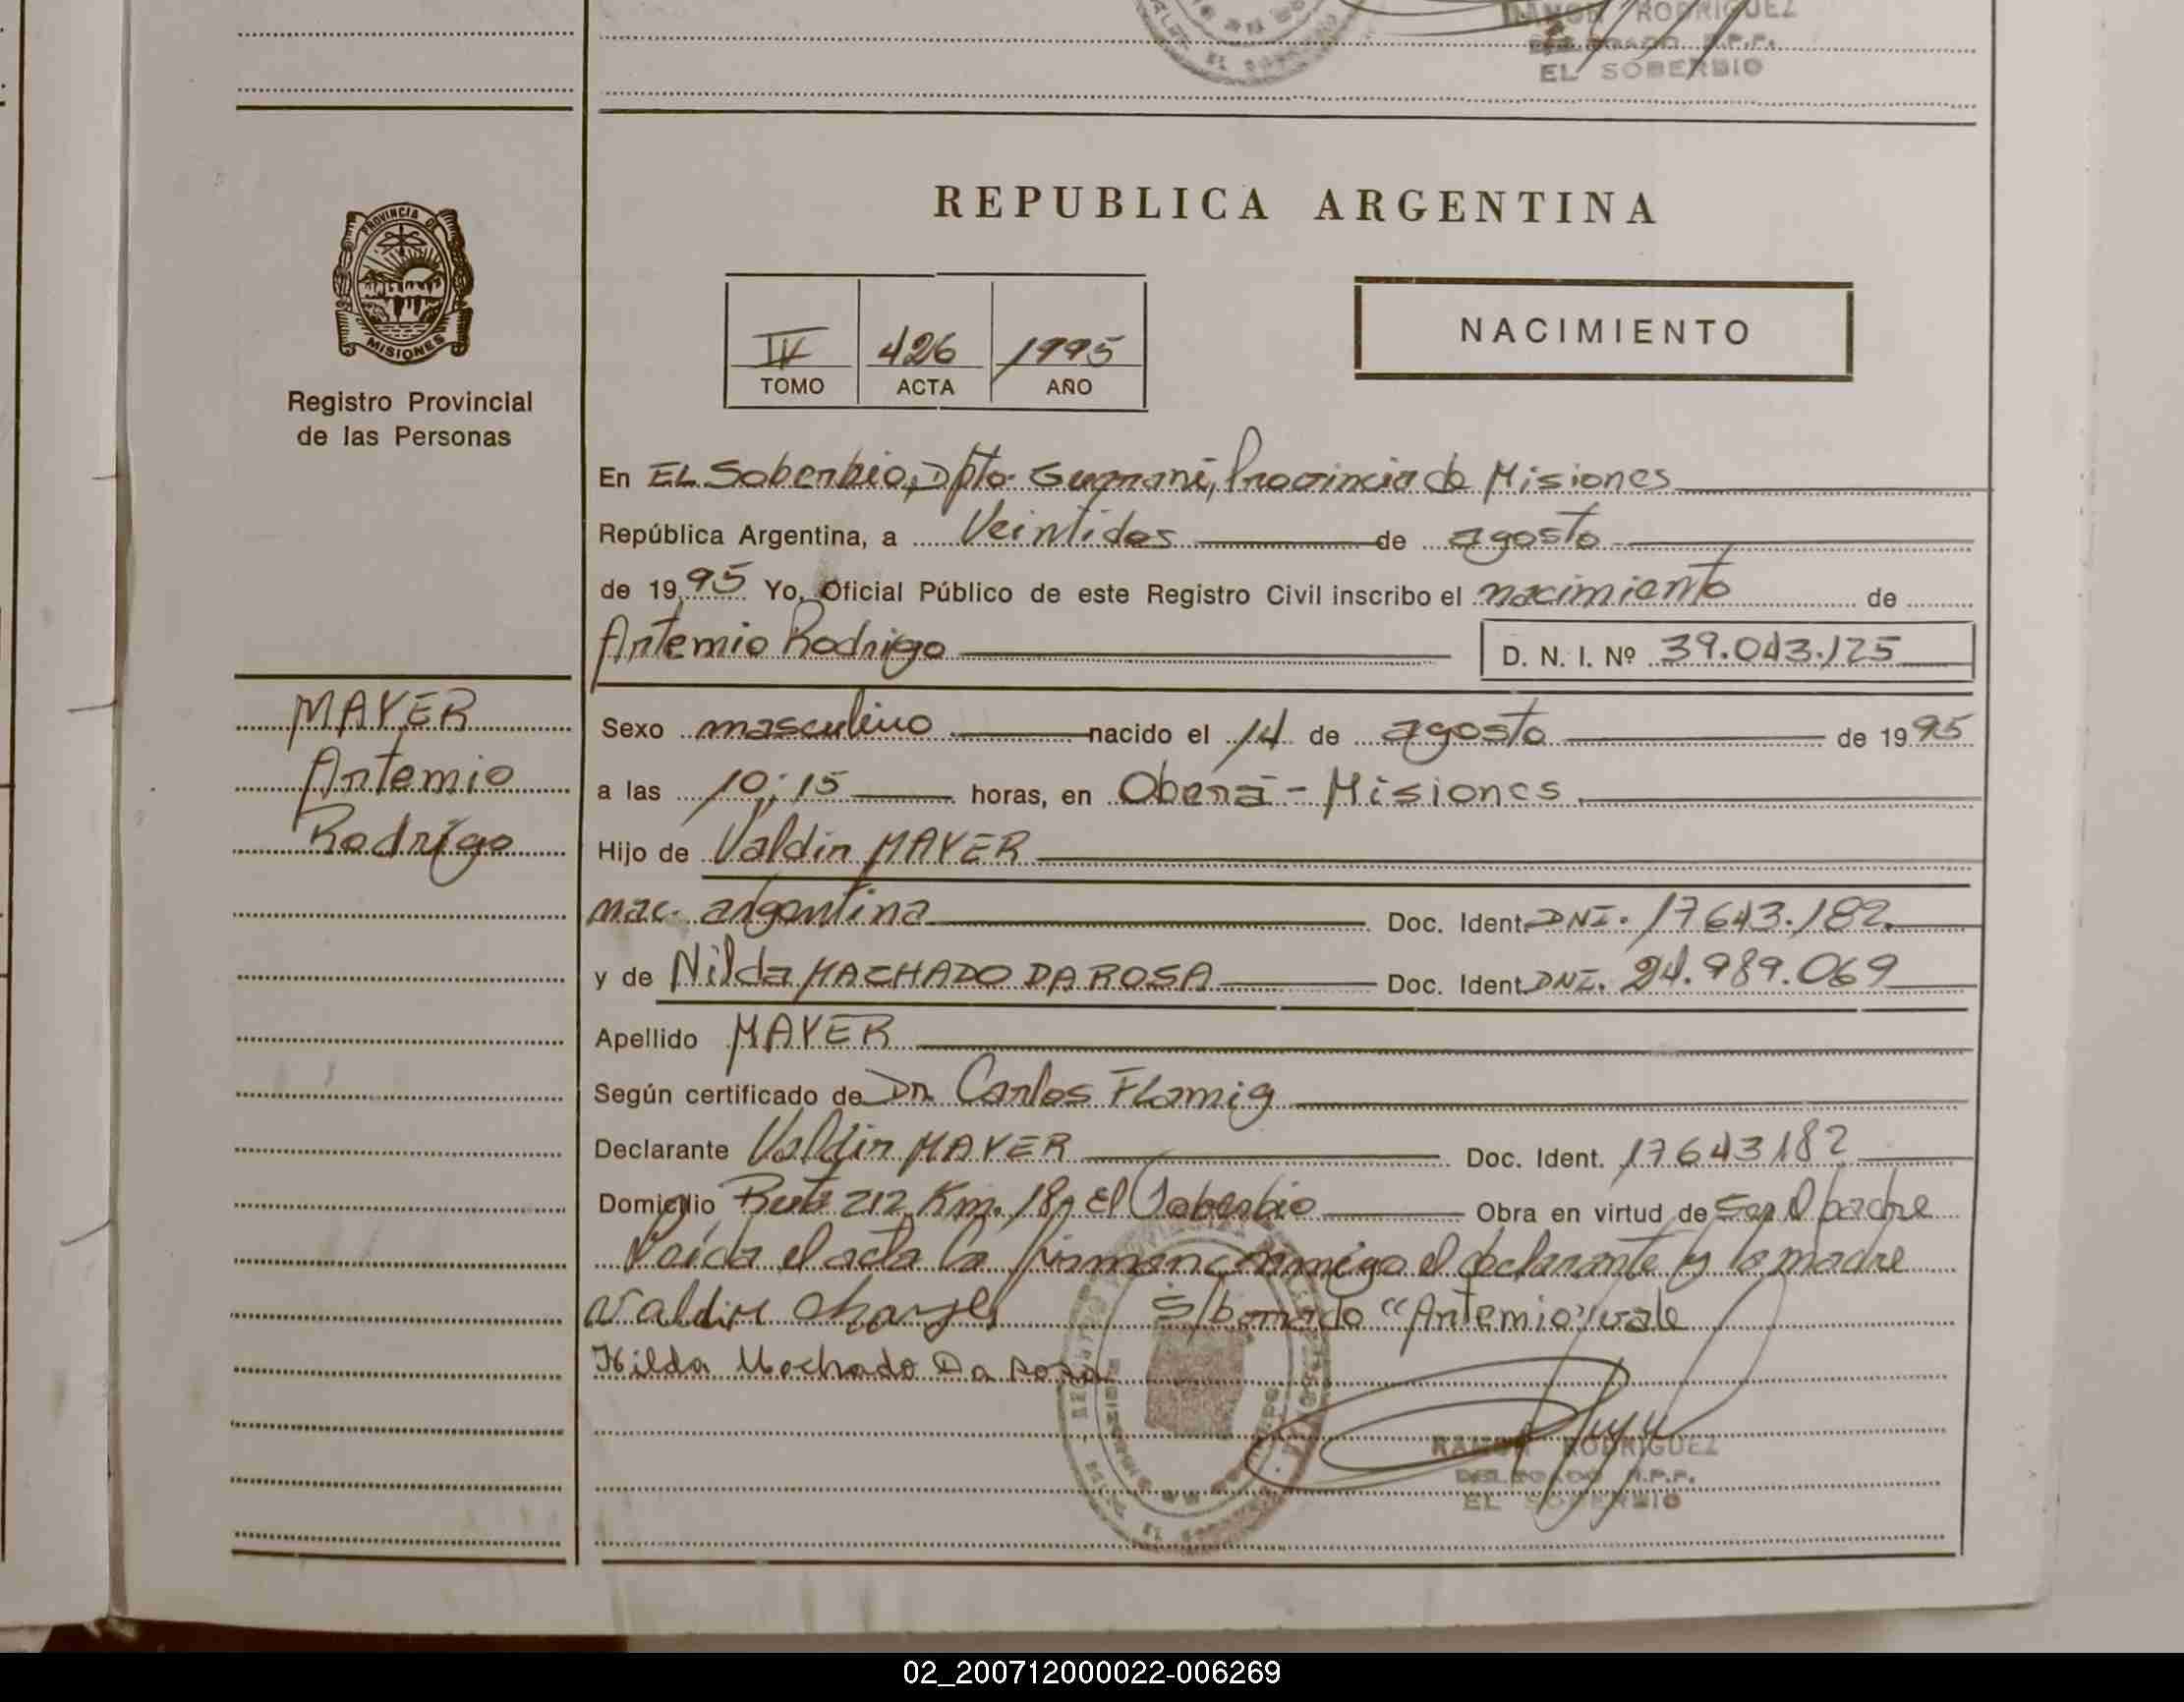 RAMON RODRIGUEZ
DELEGADO R.P.P.
EL SOBERBIO
PROVINCIA DE
MISIONES
Registro Provincial
de las Personas
REPUBLICA ARGENTINA
IV 426 1995
TOMO ACTA AÑO
NACIMIENTO
En EL Soberbio, Dpto. Guaraní, Provincia de Misiones
República Argentina, a Veintidos de agosto
de 1995 Yo, Oficial Público de este Registro Civil inscribo el nacimiento de
Artemio Rodrigo D. N. I. Nº 39.043.125
MAYER
Artemio
Rodrigo
Sexo masculino nacido el 14 de agosto de 1995
a las 10:15 horas, en Oberá - Misiones
Hijo de Valdir MAYER
nac. argentina Doc. Ident. DNI. 17643.182
y de Nilda MACHADO DA ROSA Doc. Ident. DNI. 24.989.069
Apellido MAYER
Según certificado de Dr. Carlos FLamig
Declarante Valdir MAYER Doc. Ident. 17643182
Domicilio Ruta 212 Km. 18, El Soberbio Obra en virtud de Ser el padre
Leída el acta la firman conmigo el declarante y la madre
Valdir Mayer S/borrado "Artemio" vale
Nilda Machado Da Rosa
RAMON RODRIGUEZ
DELEGADO R.P.P.
EL SOBERBIO
02_200712000022-006269